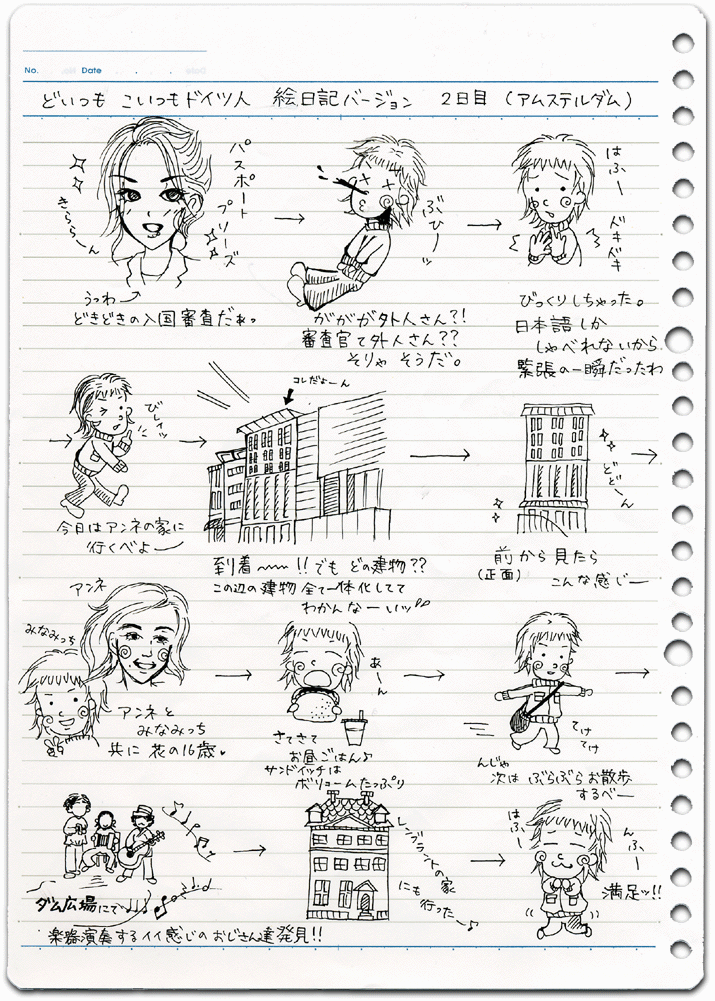 No.
Date
どいつも こいつもドイツ人 絵日記バージョン 2日目 (アムステルダム)
パスポート
プリーズ
きららーん
うっわ
どきどきの入国審査だぁっ
ぶひーッ
ががが外人さん?!
審査官て外人さん??
そりゃ そうだ。
はふー
ドキドキ
びっくりしちゃった。
日本語しか
しゃべれないから
緊張の一瞬だったわ
びしィッ
今日はアンネの家に
行くべよー
コレだよーん
到着〜〜!!でも どの建物??
この辺の建物 全て一体化してて
わかんなーいッ
どどーん
前から見たら
(正面)
こんな感じー
アンネ
みなみっち
アンネと
みなみっち
共に 花の16歳
あーん
さてさて
お昼ごはん♪
サンドイッチは
ボリュームたっぷり
てけ
てけ
んじゃ
次は ぶらぶらお散歩
するべー
ダム広場にて♪♪♪
楽器演奏するイイ感じのおじさん達発見!!
レンブラントの家
にも
行ったー♪
はふー
んふー
満足ッ!!